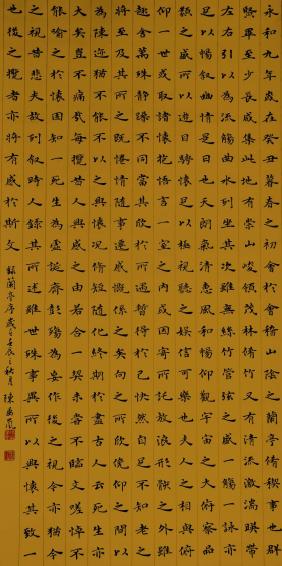 永和九年歲在癸丑暮春之初會於會稽山陰之蘭亭脩稧事也群
賢畢至少長咸集此地有崇山峻領茂林脩竹又有清流激湍暎帶
左右引以為流觴曲水列坐其次雖無絲竹管弦之盛一觴一詠亦
足以暢敘幽情是日也天朗氣清惠風和暢仰觀宇宙之大俯察品
類之盛所以遊目騁懷足以極視聽之娛信可樂也夫人之相與俯
仰一世或取諸懷抱悟言一室之內或因寄所託放浪形骸之外雖
趣舍萬殊靜躁不同當其欣於所遇暫得於己快然自足不知老之
將至及其所之既惓情隨事遷感慨係之矣向之所欣俛仰之間以
為陳迹猶不能不以之興懷況脩短隨化終期於盡古人云死生亦
大矣豈不痛哉每攬昔人興感之由若合一契未嘗不臨文嗟悼不
能喻之於懷固知一死生為虛誕齊彭殤為妄作後之視今亦猶今
之視昔悲夫故列敘時人錄其所述雖世殊事異所以興懷其致一
也後之攬者亦將有感於斯文 錄蘭亭序歲次壬辰之秋月 陳